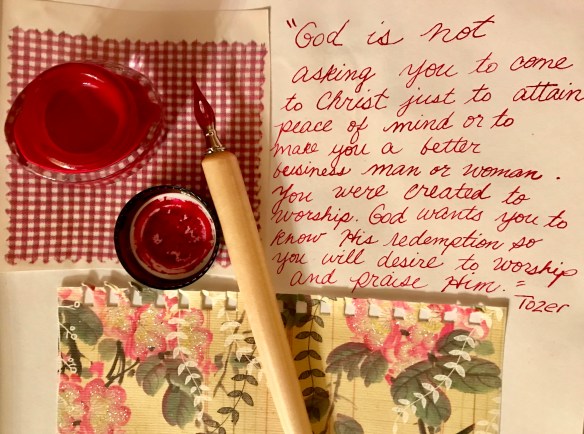 "God is not
asking you to come
to Christ just to attain
peace of mind or to
make you a better
business man or woman.
You were created to
worship. God wants you to
know His redemption so
you will desire to worship
and praise Him."
Tozer